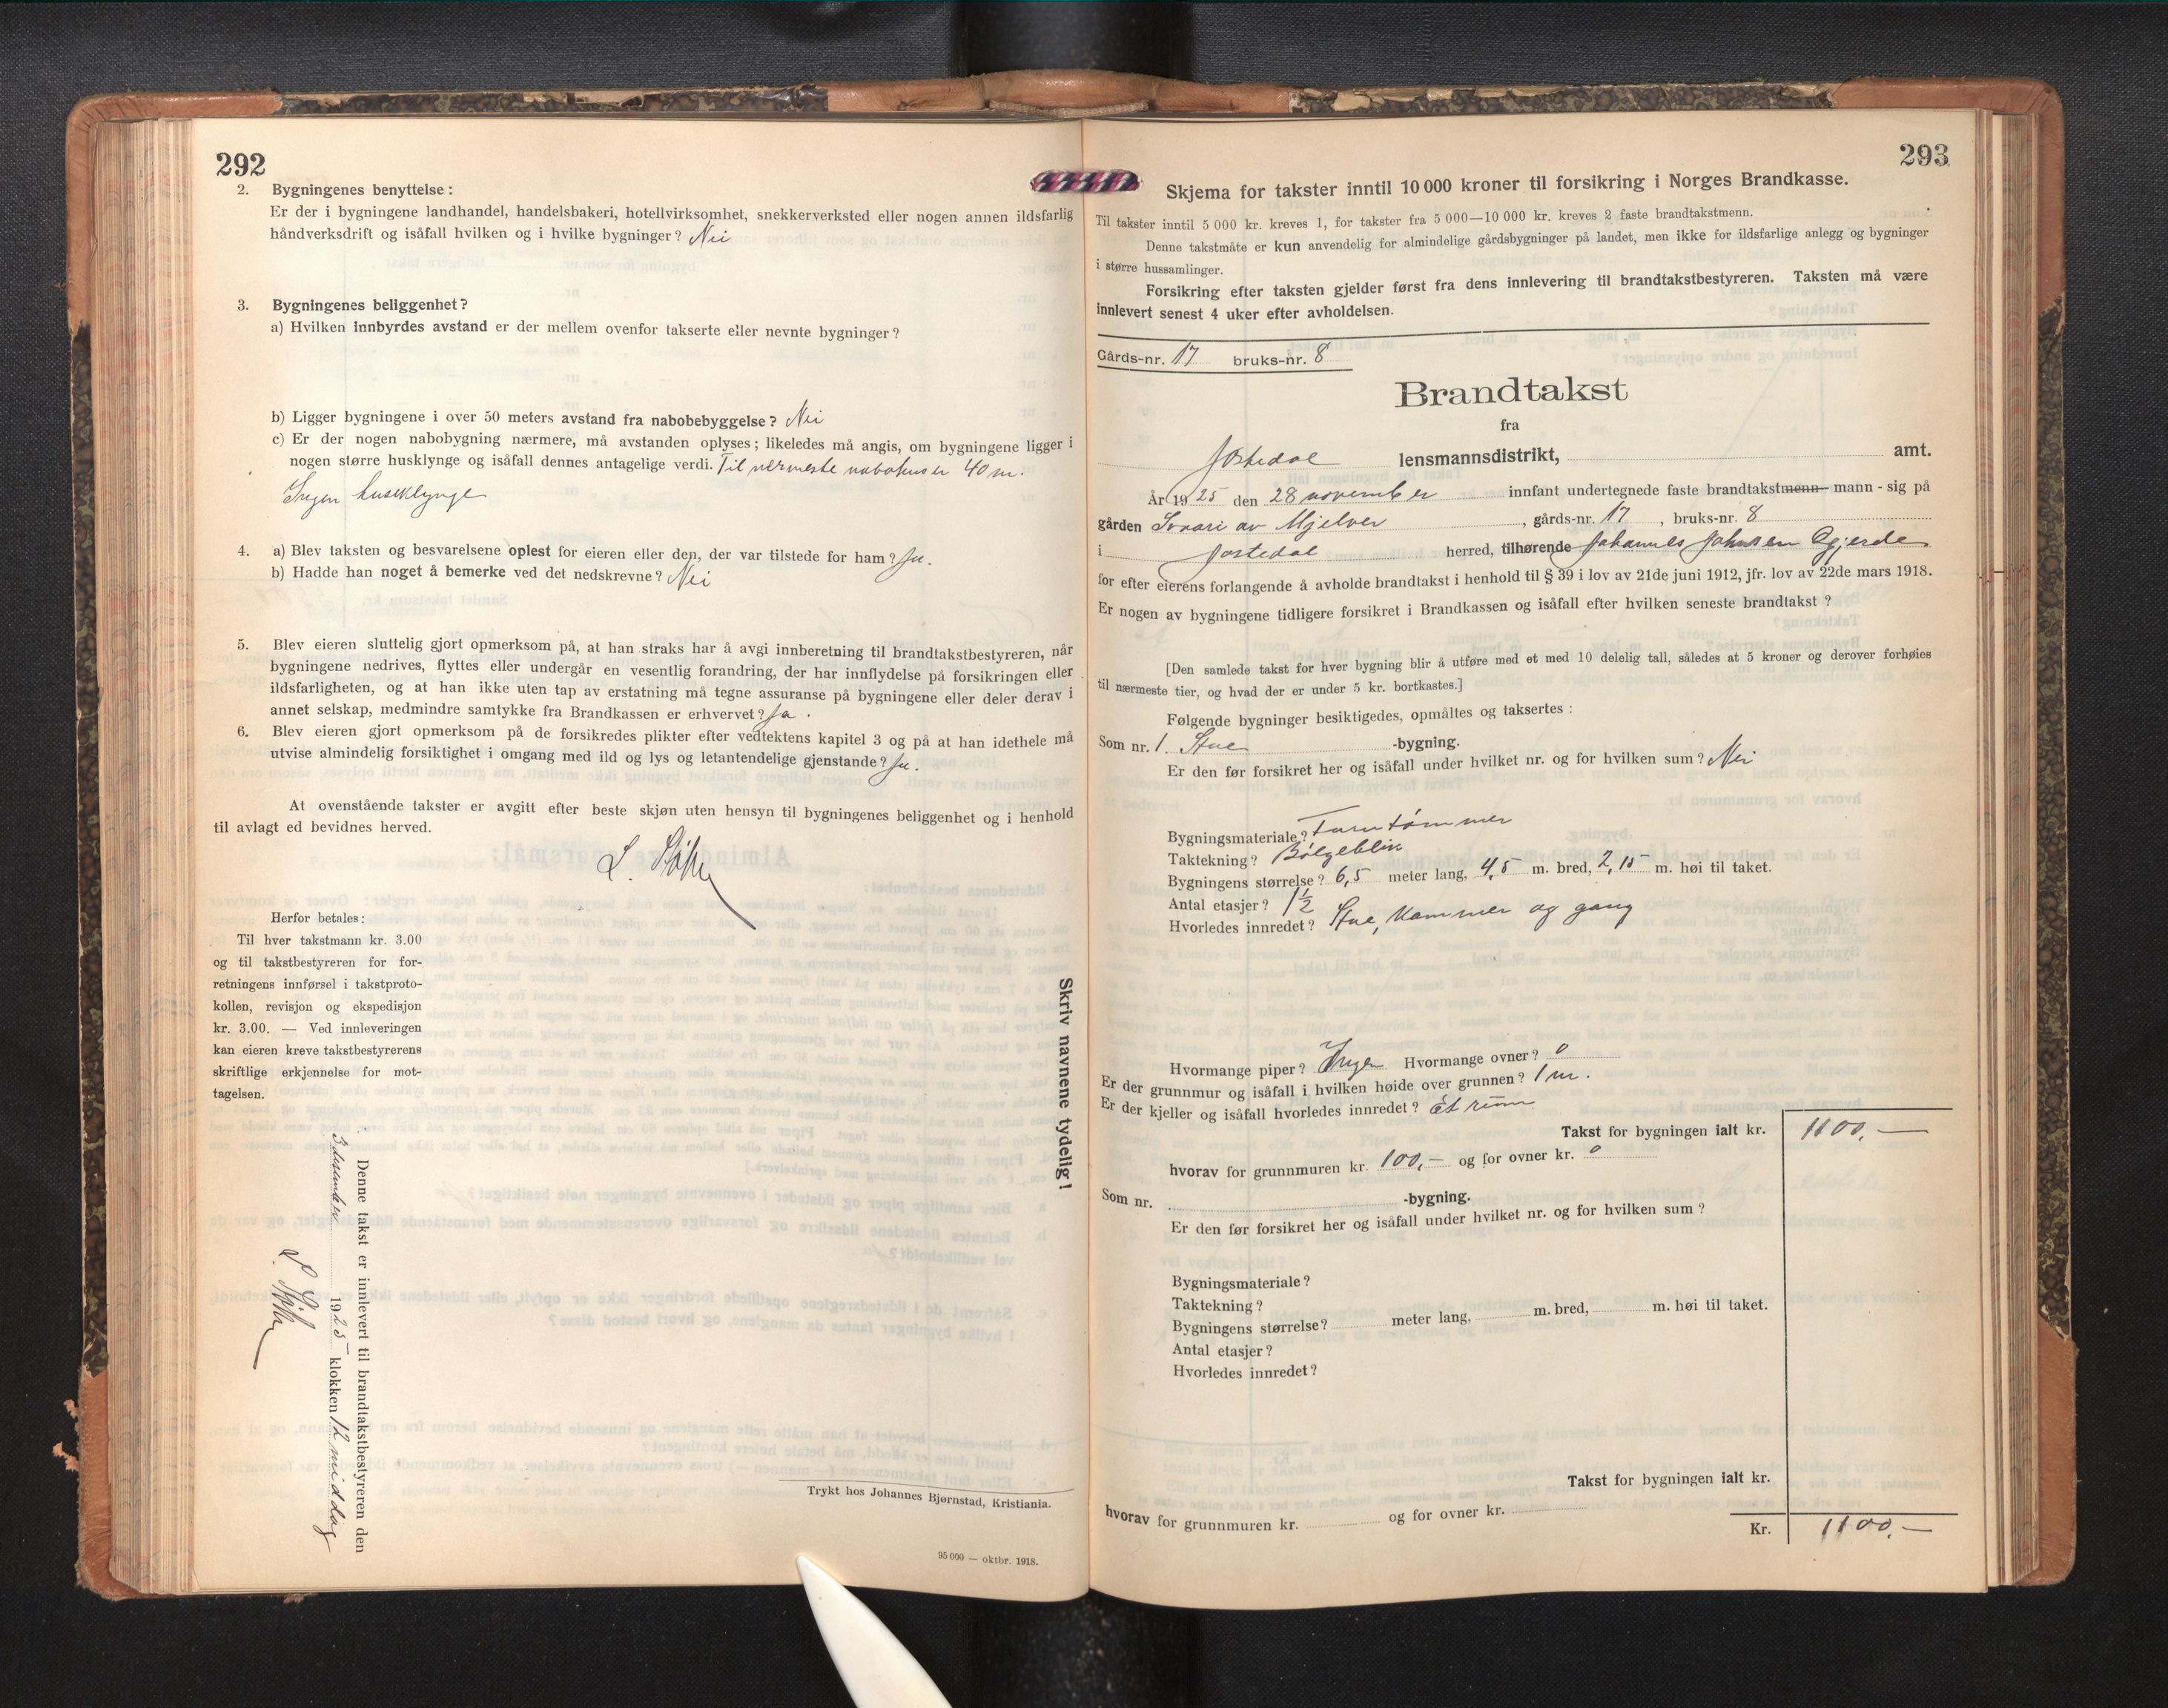 292
2. Bygningenes benyttelse :
Er der i bygningene landhandel, handelsbakeri, hotellvirksomhet, snekkerverksted eller nogen annen ildsfarlig
håndverksdrift og isåfall hvilken og i hvilke bygninger? Nei
3. Bygningenes beliggenhet ?
a) Hvilken innbyrdes avstand er der mellem ovenfor takserte eller nevnte bygninger ?
b) Ligger bygningene i over 50 meters avstand fra nabobebyggelse ? Nei
c) Er der nogen nabobygning nærmere, må avstanden oplyses ; likeledes må angis, om bygningene ligger i
nogen større husklynge og isåfall dennes antagelige verdi. Til nærmeste nabohus er 40 m.
Ingen huseklynge
4. a) Blev taksten og besvarelsene oplest for eieren eller den, der var tilstede for ham ? Ja.
b) Hadde han noget å bemerke ved det nedskrevne ? Nei
5. Blev eieren sluttelig gjort opmerksom på, at han straks har å avgi innberetning til brandtakstbestyreren, når
bygningene nedrives, flyttes eller undergår en vesentlig forandring, der har innflydelse på forsikringen eller
ildsfarligheten, og at han ikke uten tap av erstatning må tegne assuranse på bygningene eller deler derav i
annet selskap, medmindre samtykke fra Brandkassen er erhvervet ? Ja.
6. Blev eieren gjort opmerksom på de forsikredes plikter efter vedtektens kapitel 3 og på at han idethele må
utvise almindelig forsiktighet i omgang med ild og lys og letantendelige gjenstande ? Ja.
At ovenstående takster er avgitt efter beste skjøn uten hensyn til bygningenes beliggenhet og i henhold
til avlagt ed bevidnes herved.
Herfor betales :
Til hver takstmann kr. 3.00
og til takstbestyreren for for-
retningens innførsel i takstproto-
kollen, revisjon og ekspedisjon
kr. 3.00. — Ved innleveringen
kan eieren kreve takstbestyrerens
skriftlige erkjennelse for mot-
tagelsen.
Skriv navnene tydelig!
Denne takst er innlevert til brandtakstbestyreren den
3 desember 1925 klokken 12 middag
Trykt hos Johannes Bjørnstad, Kristiania.
95 000 — oktbr. 1918.
293
Skjema for takster inntil 10 000 kroner til forsikring i Norges Brandkasse.
Til takster inntil 5 000 kr. kreves 1, for takster fra 5 000—10 000 kr. kreves 2 faste brandtakstmenn.
Denne takstmåte er kun anvendelig for almindelige gårdsbygninger på landet, men ikke for ildsfarlige anlegg og bygninger
i større hussamlinger.
Forsikring efter taksten gjelder først fra dens innlevering til brandtakstbestyreren. Taksten må være
innlevert senest 4 uker efter avholdelsen.
Gårds-nr. 17 bruks-nr. 8
Brandtakst
fra
Jostedal lensmannsdistrikt, amt.
År 1925 den 28 november innfant undertegnede faste brandtakstmenn- mann - sig på
gården Svari av Mjelver, gårds-nr. 17, bruks-nr. 8
i Jostedal herred, tilhørende Johannes Johnsen Ogjerde
for efter eierens forlangende å avholde brandtakst i henhold til § 39 i lov av 21de juni 1912, jfr. lov av 22de mars 1918.
Er nogen av bygningene tidligere forsikret i Brandkassen og isåfall efter hvilken seneste brandtakst ?
[Den samlede takst for hver bygning blir å utføre med et med 10 delelig tall, således at 5 kroner og derover forhøies
til nærmeste tier, og hvad der er under 5 kr. bortkastes.]
Følgende bygninger besiktigedes, opmåltes og taksertes :
Som nr. 1. Stue -bygning.
Er den før forsikret her og isåfall under hvilket nr. og for hvilken sum ? Nei
Bygningsmateriale ? Furutømmer
Taktekning ? Bølgeblik
Bygningens størrelse ? 6,5 meter lang, 4,5 m. bred, 2,15 m. høi til taket.
Antal etasjer ? 1½
Hvorledes innredet ? Stue, kammer og gang
Hvormange piper ? Ingen Hvormange ovner ? 0
Er der grunnmur og isåfall i hvilken høide over grunnen ? 1 m.
Er der kjeller og isåfall hvorledes innredet ? Et rum
Takst for bygningen ialt kr. 1100,—
hvorav for grunnmuren kr. 100,— og for ovner kr. 0
Som nr. -bygning.
Er den før forsikret her og isåfall under hvilket nr. og for hvilken sum ?
Bygningsmateriale ?
Taktekning ?
Bygningens størrelse ? meter lang, m. bred, m. høi til taket.
Antal etasjer ?
Hvorledes innredet ?
Takst for bygningen ialt kr.
hvorav for grunnmuren kr. og for ovner kr.
Kr. 1100,—